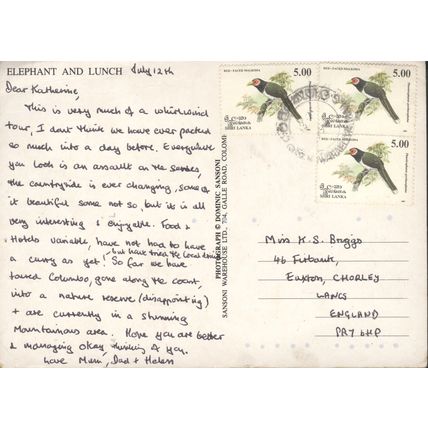 ELEPHANT AND LUNCH July 12th
Dear Katherine,
This is very much of a whirlwind
tour, I dont think we have ever packed
so much into a day before. Everywhere
you look is an assault on the senses,
the countryside is ever changing, some of
it beautiful some not so, but its is all
very interesting & enjoyable. Food &
Hotels variable, have not had to have
a curry as yet! but have tried the local
So far we have
toured Columbo, gone along the coast,
into a nature reserve (disappointing)
+ are currently in a stunning
Mountainous area. Hope you are better
& managing okay, thinking of you.
Love Mum, Dad + Helen
PHOTOGRAPH © DOMINIC SANSONI
SANSONI WAREHOUSE LTD., 704, GALLE ROAD, COLOMBO
RED - FACED MALKOHA
5.00
ශ්‍රී ලංකා
இலங்கை
SRI LANKA
RED - FACED MALKOHA
5.00
ශ්‍රී ලංකා
இலங்கை
SRI LANKA
5.00
ශ්‍රී ලංකා
இலங்கை
SRI LANKA
Miss K.S. Briggs
46 Firbank,
Euxton, CHORLEY
LANCS
ENGLAND
PR7 6HP